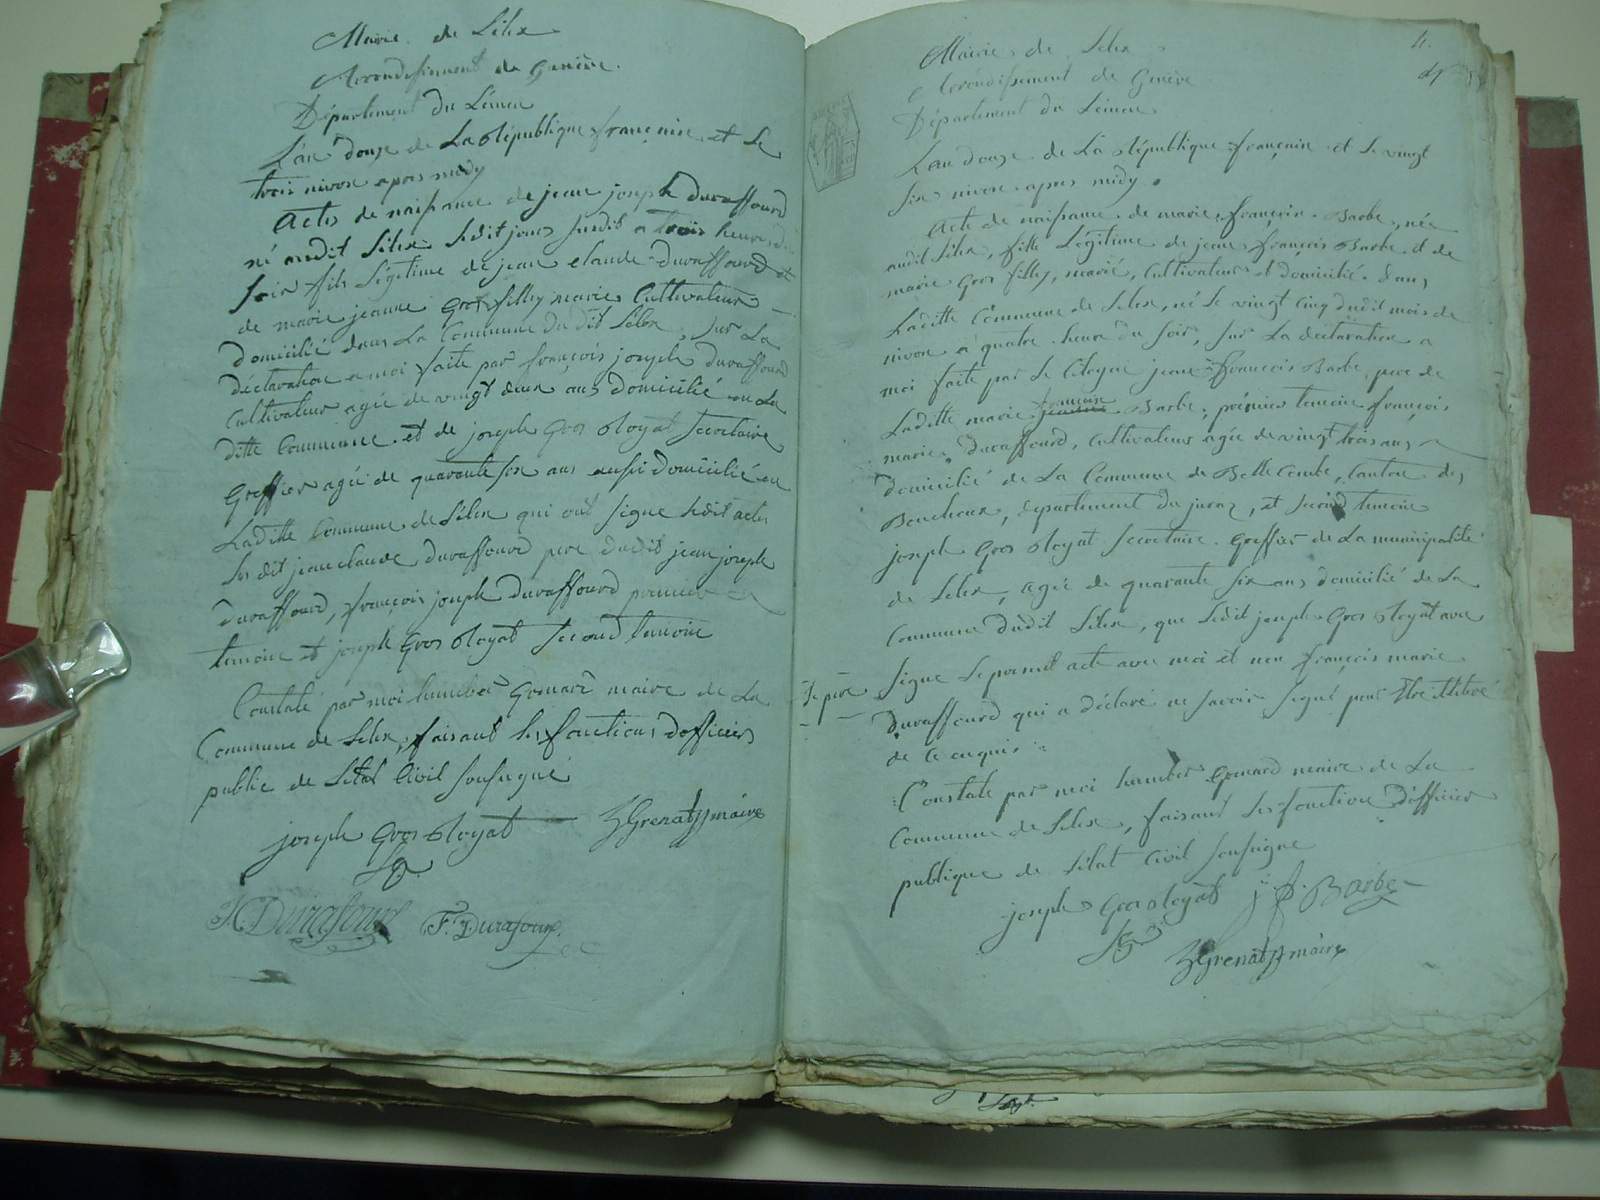 Mairie de Lélex
Arrondissement de Genève.
Département du Léman
L'an douze de La République française et le
trois nivose apres midy
Actes de naissance de jean joseph duraffourd
né audit Lélex ledit jour susdit a trois heures du
soir fils Légitime de jean claude duraffourd et
de marie jeanne grosfilley mariés Cultivateur
domicilié dans La Commune du dit Lélex, sur La
déclaration a moi faite par françois joseph duraffourd
Cultivateur agée de vingt deux ans domicilié en La
ditte Commune et de joseph Gros Royat Secretaire
Greffier agée de quarante six ans aussi domicilié en
Laditte Commune de Lélex qui ont signé ledit actes
les dit jean claude duraffourd pere dudit jean joseph
duraffourd, françois joseph duraffourd premier
temoin et joseph Gros Royat second temoin
Constaté par moi humber Grenard maire de La
Commune de Lélex, faisant les fonctions d'officiers
public de L'état Civil soussigné
joseph Gros Royat hGrenard maire
Sg.
JC Durafour Fs Durafourg
4.
Mairie de Lélex
Arrondissement de Genève
Département du Léman
L'an douze de La République française et le vingt
six nivose apres midy.
Acte de naissance de marie françoise Barbe, née
audit Lélex, fille Légitime de jean françois Barbe et de
marie Gros filley, marié, Cultivateurs et domicilié dans
Laditte Commune de Lélex, né le vingt cinq dudit mois de
nivose a quatre heure du soir, sur La declaration a
moi faite par le Citoyen jean françois Barbe, pere de
Laditte marie françoise Barbe, premier temoin françois
marie duraffourd, cultivateur agée de vingt trois ans
domicilié de La Commune de Bellecombe, Canton des
Bouchoux, département du jura, et second temoin
joseph Gros Royat Secretaire Greffier de La municipalité
de Lélex, agée de quarante six ans domicilié de La
Commune dudit Lélex, que ledit joseph Gros Royat avec
le pere signé le present acte avec moi et non françois marie
duraffourd qui a déclaré ne savoir signé pour Etre illitéré
de ce enquis
Constaté par moi humber Grenard maire de La
Commune de Lélex, faisant les fonction d'officier
publique de L'état Civil soussigné
joseph Gros Royat j. f. Barbe
Sg
hGrenard maire